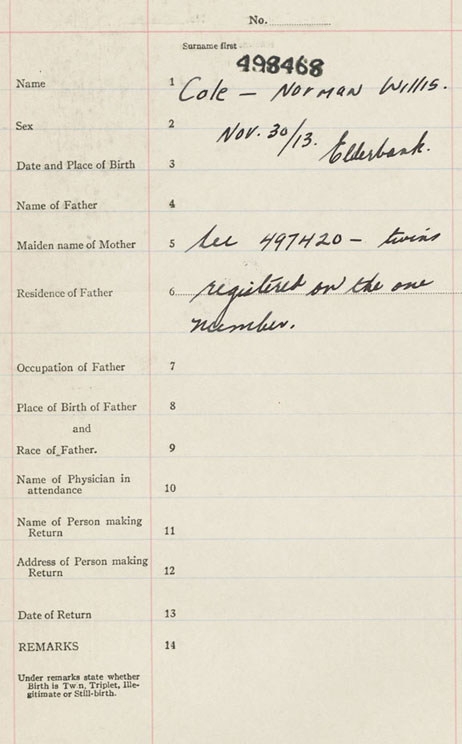 No.
Surname first
498468
Name 1 Cole - Norman Willis.
Sex 2
Nov. 30/13. Elderbank.
Date and Place of Birth 3
Name of Father 4
Maiden name of Mother 5 See 497420 - twins
Residence of Father 6 registered on the one
number.
Occupation of Father 7
Place of Birth of Father 8
and
Race of Father. 9
Name of Physician in
attendance 10
Name of Person making
Return 11
Address of Person making
Return 12
Date of Return 13
REMARKS 14
Under remarks state whether
Birth is Twn, Triplet, Ille-
gitimate or Still-birth.